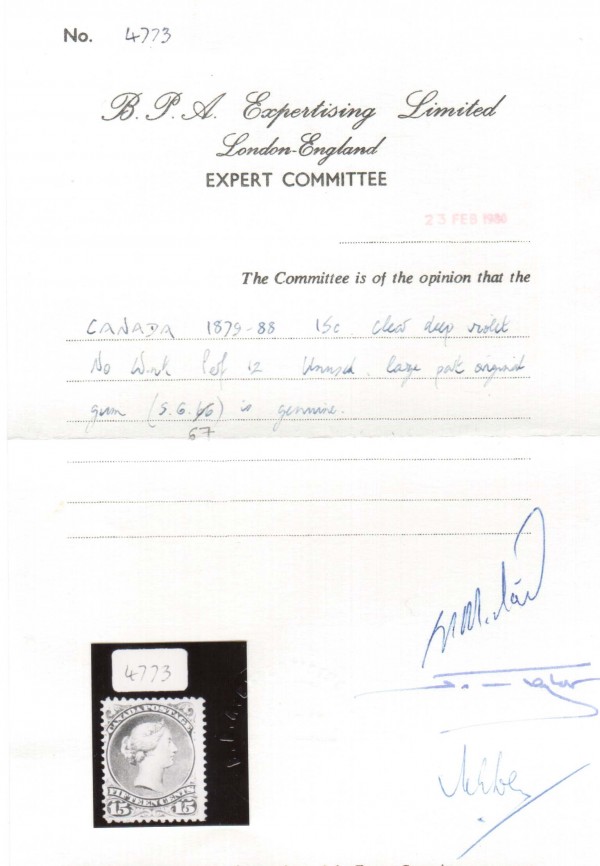 No. 4773
B.P.A. Expertising Limited
London-England
EXPERT COMMITTEE
23 FEB
The Committee is of the opinion that the
CANADA 1879-88 15c. Clear deep violet
No Wmk Perf 12 Unused. large part original
gum (S.G. ) is genuine.
67
4773
CANADA POSTAGE
FIFTEEN CENTS
15 15